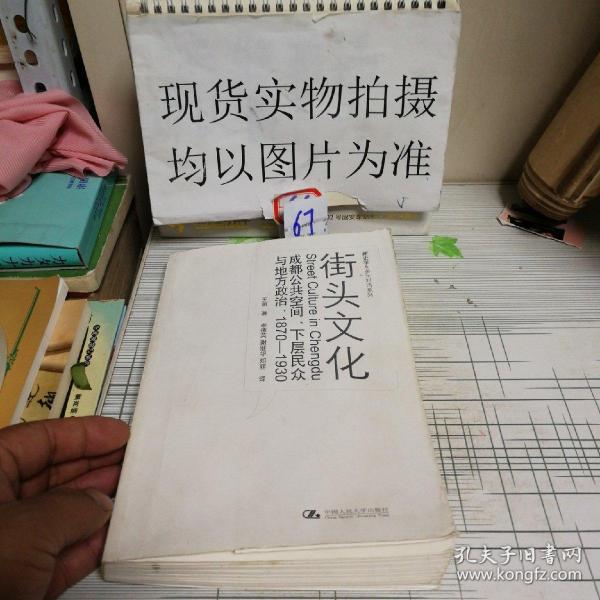 现货实物拍摄
均以图片为准
67
街头文化
Street Culture in Chengdu
成都公共空间、下层民众
与地方政治,1870—1930
王笛 著
中国人民大学出版社
China Renmin University Press
孔夫子旧书网
www.kongfz.com